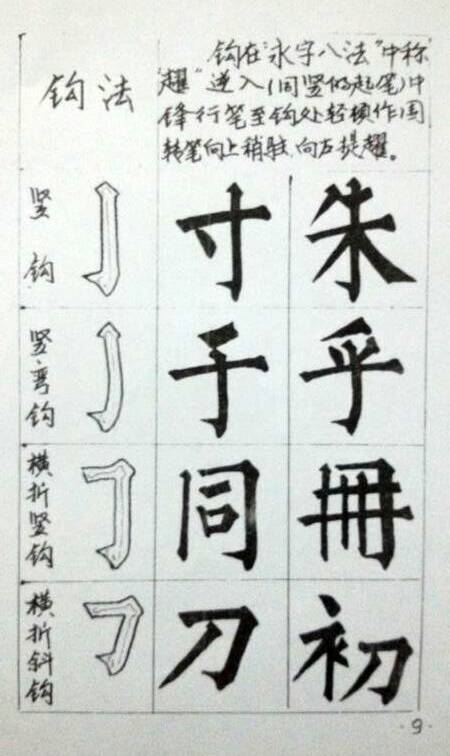 钩法
钩在“永字八法”中称
“趯”逆入(同竖的起笔)中
锋行笔至钩处轻顿作围
转笔向上稍驻,向左提趯。
竖钩
寸 朱
竖弯钩
于 乎
横折竖钩
同 冊
横折斜钩
刀 初
·9·